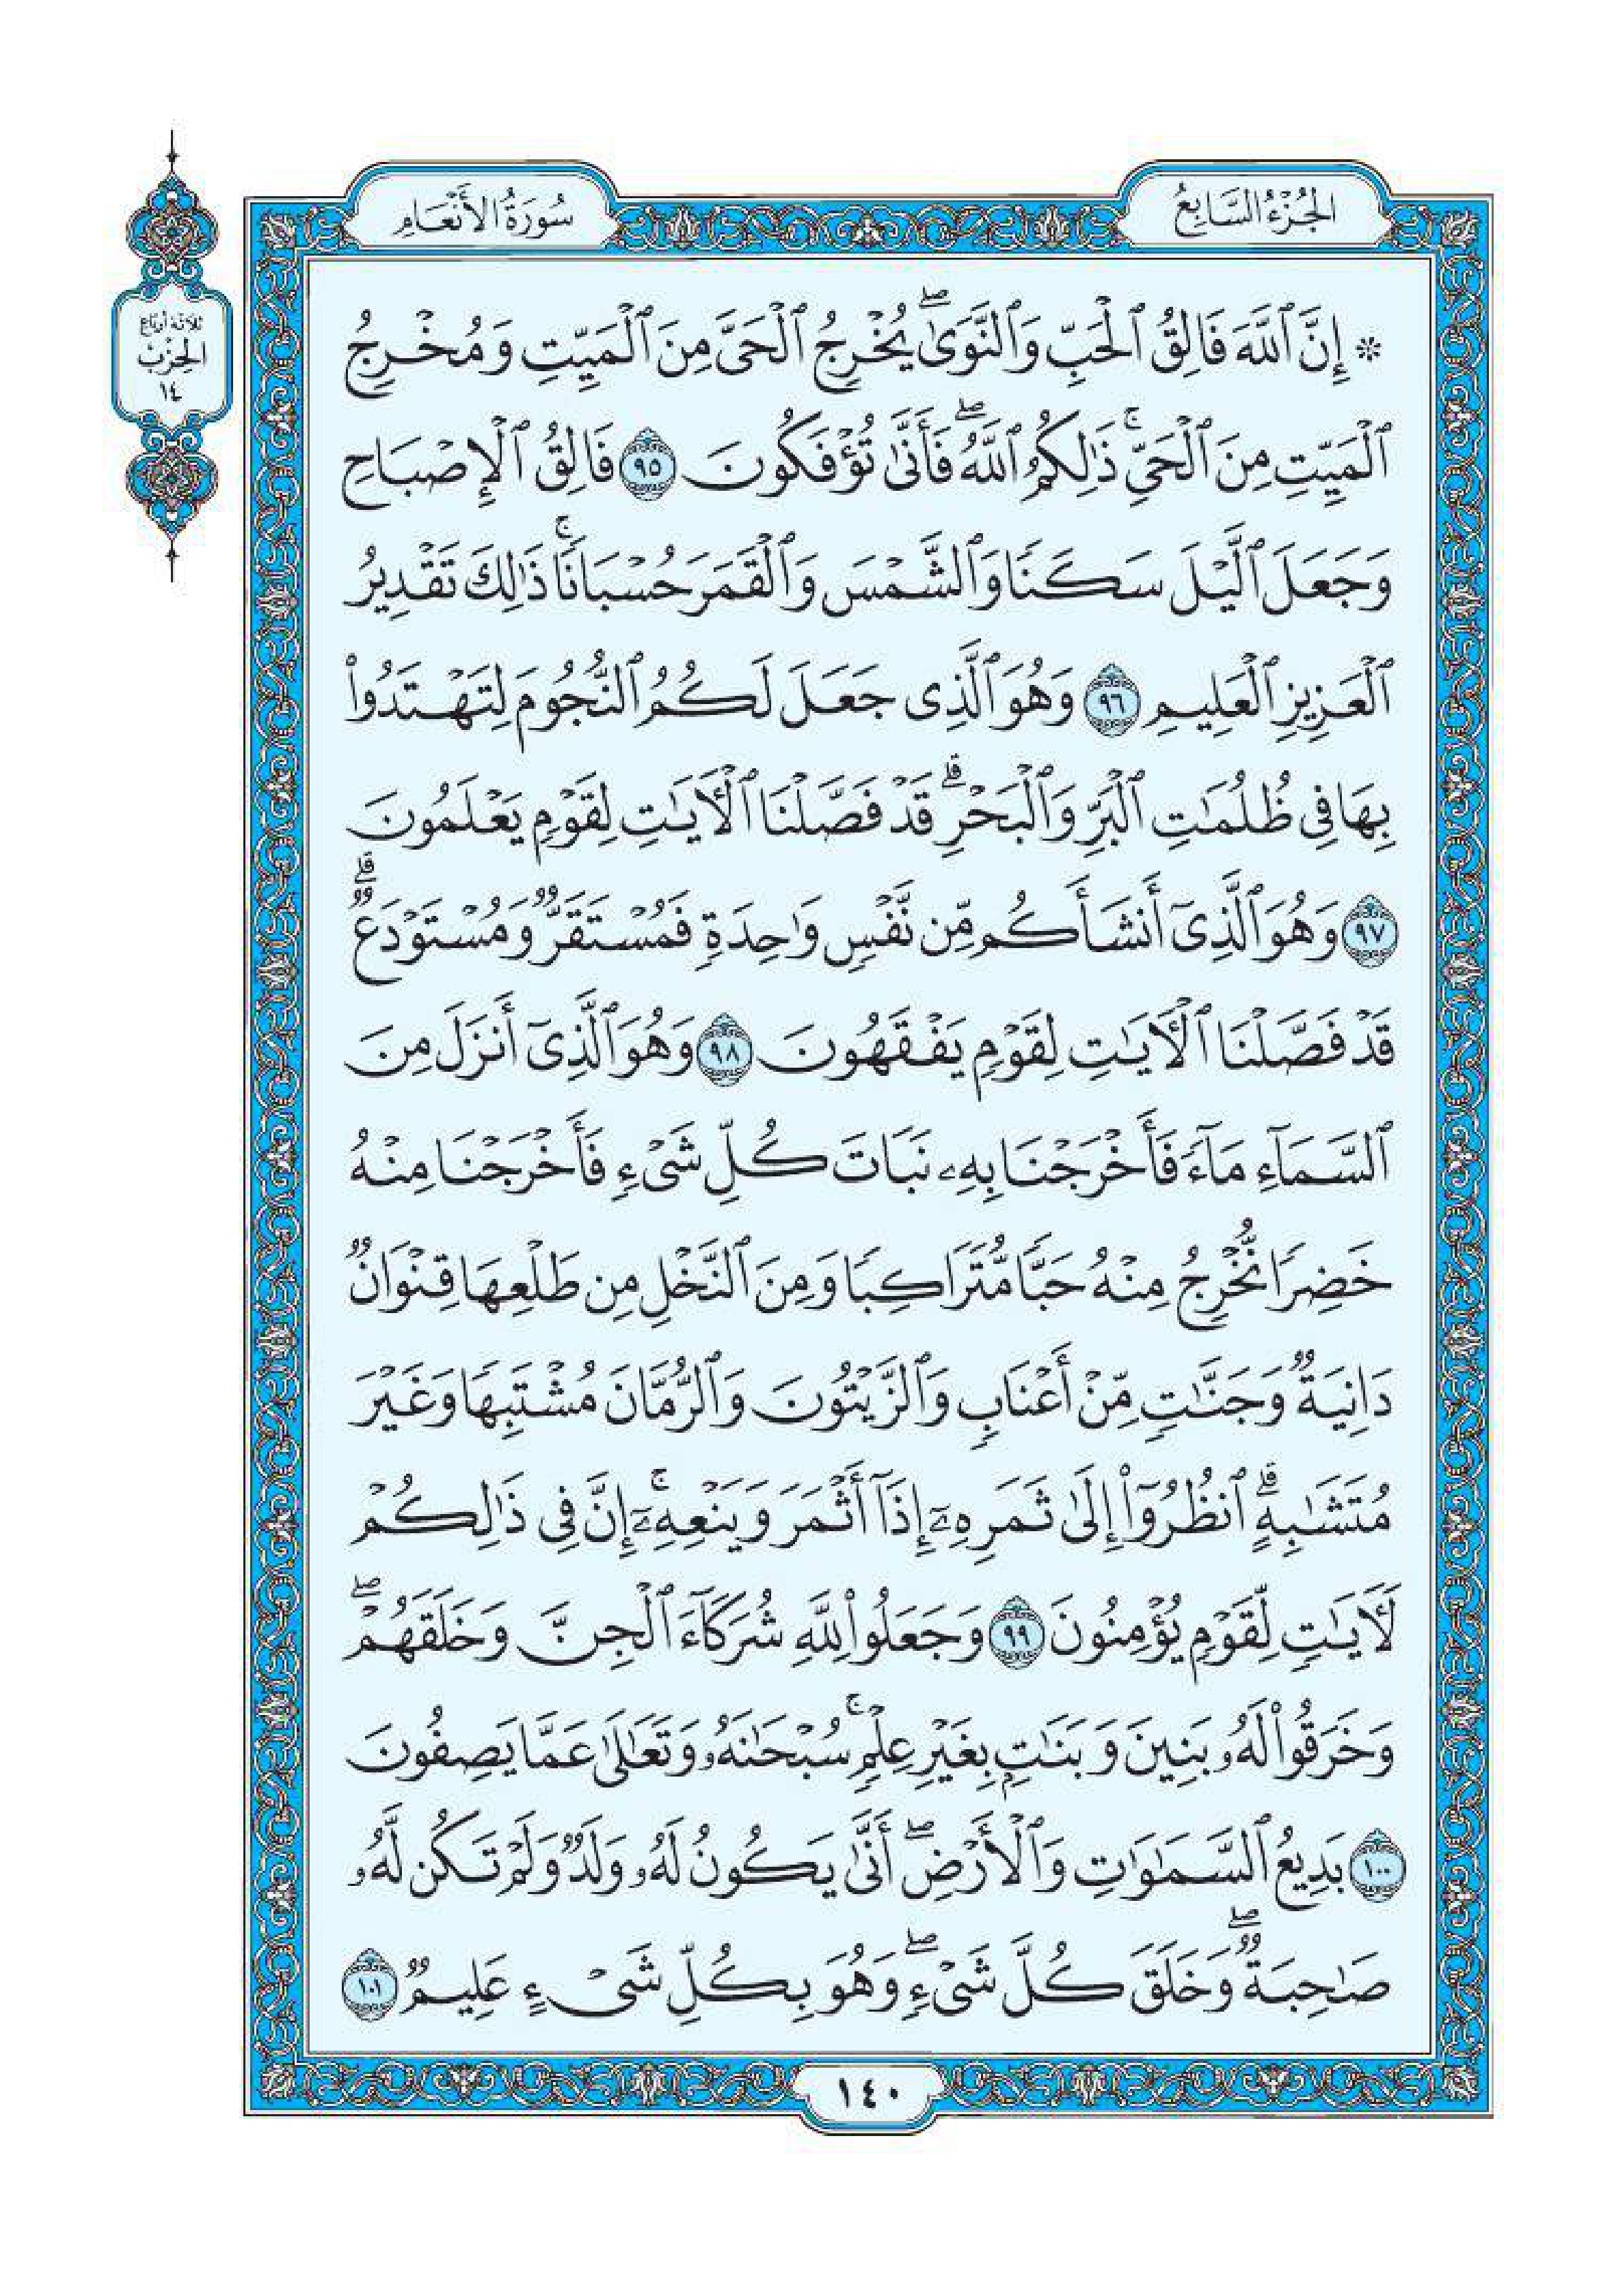 الجُزْءُ السَّابِعُ
سُورَةُ الأَنْعَامِ
ثَلَاثَةُ أَرْبَاعِ
الحِزْبِ
١٤
۞ إِنَّ ٱللَّهَ فَالِقُ ٱلْحَبِّ وَٱلنَّوَىٰۖ يُخْرِجُ ٱلْحَىَّ مِنَ ٱلْمَيِّتِ وَمُخْرِجُ
ٱلْمَيِّتِ مِنَ ٱلْحَىِّۚ ذَٰلِكُمُ ٱللَّهُۖ فَأَنَّىٰ تُؤْفَكُونَ ٩٥ فَالِقُ ٱلْإِصْبَاحِ
وَجَعَلَ ٱلَّيْلَ سَكَنًا وَٱلشَّمْسَ وَٱلْقَمَرَ حُسْبَانًاۚ ذَٰلِكَ تَقْدِيرُ
ٱلْعَزِيزِ ٱلْعَلِيمِ ٩٦ وَهُوَ ٱلَّذِى جَعَلَ لَكُمُ ٱلنُّجُومَ لِتَهْتَدُوا۟
بِهَا فِى ظُلُمَٰتِ ٱلْبَرِّ وَٱلْبَحْرِۗ قَدْ فَصَّلْنَا ٱلْءَايَٰتِ لِقَوْمٍ يَعْلَمُونَ
٩٧ وَهُوَ ٱلَّذِىٓ أَنشَأَكُم مِّن نَّفْسٍ وَٰحِدَةٍ فَمُسْتَقَرٌّ وَمُسْتَوْدَعٌۗ
قَدْ فَصَّلْنَا ٱلْءَايَٰتِ لِقَوْمٍ يَفْقَهُونَ ٩٨ وَهُوَ ٱلَّذِىٓ أَنزَلَ مِنَ
ٱلسَّمَآءِ مَآءً فَأَخْرَجْنَا بِهِۦ نَبَاتَ كُلِّ شَىْءٍ فَأَخْرَجْنَا مِنْهُ
خَضِرًا نُّخْرِجُ مِنْهُ حَبًّا مُّتَرَاكِبًا وَمِنَ ٱلنَّخْلِ مِن طَلْعِهَا قِنْوَانٌ
دَانِيَةٌ وَجَنَّٰتٍ مِّنْ أَعْنَابٍ وَٱلزَّيْتُونَ وَٱلرُّمَّانَ مُشْتَبِهًا وَغَيْرَ
مُتَشَٰبِهٍۗ ٱنظُرُوٓا۟ إِلَىٰ ثَمَرِهِۦٓ إِذَآ أَثْمَرَ وَيَنْعِهِۦٓۚ إِنَّ فِى ذَٰلِكُمْ
لَءَايَٰتٍ لِّقَوْمٍ يُؤْمِنُونَ ٩٩ وَجَعَلُوا۟ لِلَّهِ شُرَكَآءَ ٱلْجِنَّ وَخَلَقَهُمْۖ
وَخَرَقُوا۟ لَهُۥ بَنِينَ وَبَنَٰتٍۭ بِغَيْرِ عِلْمٍۚ سُبْحَٰنَهُۥ وَتَعَٰلَىٰ عَمَّا يَصِفُونَ
١٠٠ بَدِيعُ ٱلسَّمَٰوَٰتِ وَٱلْأَرْضِۖ أَنَّىٰ يَكُونُ لَهُۥ وَلَدٌ وَلَمْ تَكُن لَّهُۥ
صَٰحِبَةٌۖ وَخَلَقَ كُلَّ شَىْءٍۖ وَهُوَ بِكُلِّ شَىْءٍ عَلِيمٌ ١٠١
١٤٠